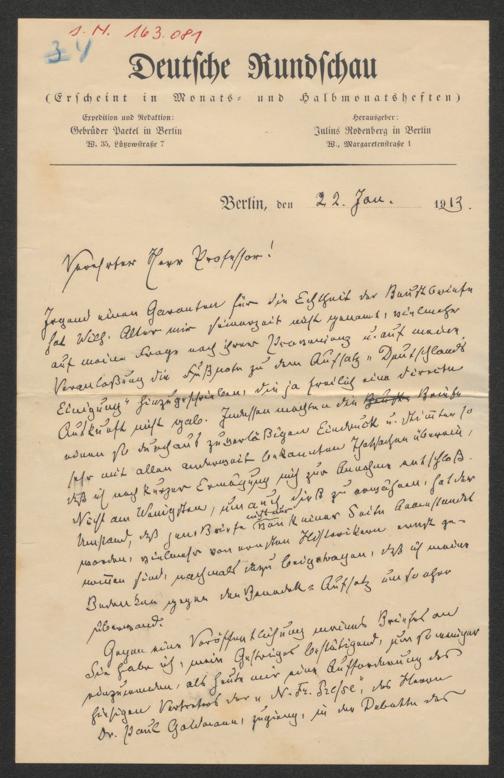 I. N. 163.081
34
Deutsche Rundschau
(Erscheint in Monats- und Halbmonatsheften)
Expedition und Redaktion:
Gebrüder Paetel in Berlin
W. 35, Lützowstraße 7
Herausgeber:
Julius Rodenberg in Berlin
W., Margaretenstraße 1
Berlin, den 22. Jan. 1913.
Verehrter Herr Professor!
Irgend einen Garanten für die Echtheit der Briefe
hat Wilh. Alter mir seinerzeit nicht genannt, vielmehr
auf meine Frage nach ihrer Provenienz u. auf meine
Veranlaßung die Fußnote zu dem Aufsatz „Deutschlands
Einigung“ hinzugeschrieben, die ja freilich eine direkte
Auskunft nicht gab. Indessen machten die Briefe
einen so durchaus zuverläßigen Eindruck u. stimmten so
sehr mit allen anderweit bekannten Thatsachen überein,
daß ich nach kurzer Erwägung mich zur Annahme entschloß.
Nicht am Wenigsten, um auch dieß zu erwähnen, hat der
Umstand, daß jene Briefe von keiner Seite beanstandet
worden, vielmehr von ernsten Historikern ernst ge-
nommen sind, nachmals dazu beigetragen, daß ich meine
Bedenken gegen den Benedek-Aufsatz um so eher
überwand.
Gegen eine Veröffentlichung meines Briefes an
Sie habe ich, mein Gestriges bestätigend, um so weniger
einzuwenden, als heute mir eine Aufforderung des
hiesigen Vertreters der „N. Fr. Presse“, des Herrn
Dr. Paul Goldmann, zuging, in der Debatte des